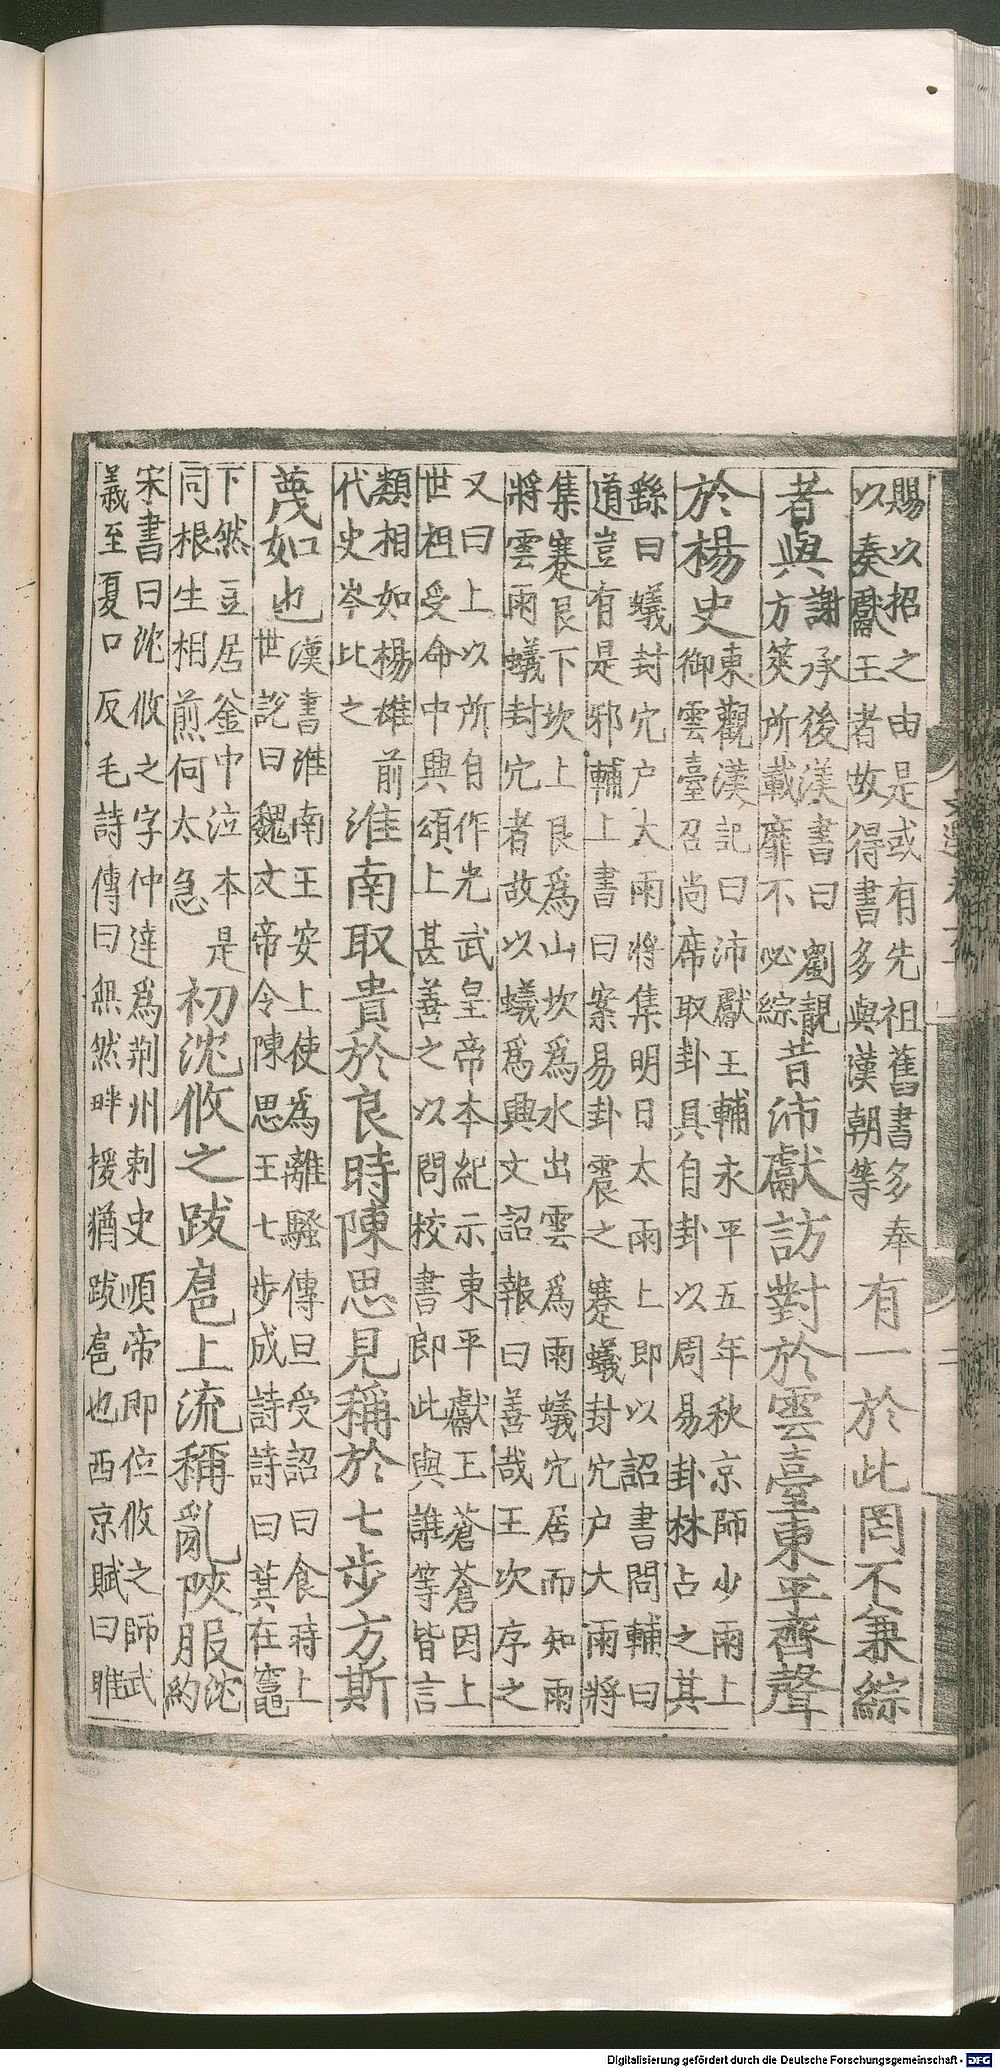 賜以招之由是或有先祖舊書多奉
以奏獻王者故得書多與漢朝等
有一於此罔不兼綜
者與
謝承後漢書曰劉靚
方筴所載靡不必綜
昔沛獻訪對於雲臺東平齊聲
於楊史
東觀漢記曰沛獻王輔永平五年秋京師少雨上
御雲臺召尚席取卦具自卦以周易卦林占之其
繇曰蟻封穴户大雨將集明日大雨上即以詔書問輔曰
道豈有是邪輔上書曰案易卦震之蹇蟻封穴户大雨將
集蹇艮下坎上艮爲山坎爲水出雲爲雨蟻穴居而知雨
將雲雨蟻封穴者故以蟻爲興文詔報曰善哉王次序之
又曰上以所自作光武皇帝本紀示東平獻王蒼蒼因上
世祖受命中興頌上甚善之以問校書郎此與誰等皆言
類相如楊雄前
代史岑比之
淮南取貴於良時陳思見稱於七步方斯
蔑如也
漢書淮南王安上使爲離騷傳旦受詔曰食時上
世說曰魏文帝令陳思王七步成詩詩曰萁在竈
下然豆居釜中泣本是
同根生相煎何太急
初沈攸之跋扈上流稱亂陝服
沈
約
宋書曰沈攸之字仲達爲荆州刺史順帝即位攸之師武
義至夏口反毛詩傳曰無然畔援猶跋扈也西京賦曰睢
Digitalisierung gefördert durch die Deutsche Forschungsgemeinschaft - DFG